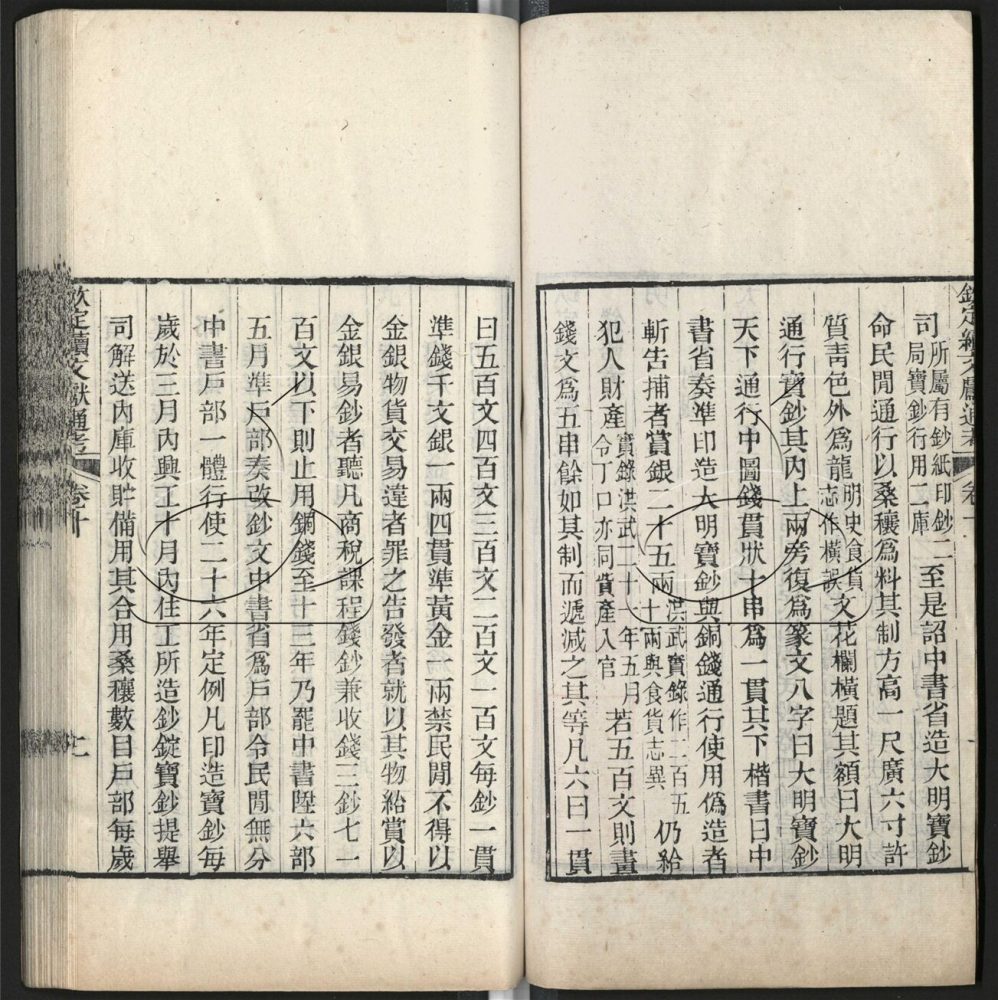 司所屬有鈔紙印鈔二局寶鈔行用二庫至是詔中書省造大明寶鈔
命民閒通行以桑穰爲料其制方高一尺廣六寸許
質靑色外爲龍明史食貨志作橫誤文花欄橫題其額曰大明
通行寶鈔其內上兩旁復爲篆文八字曰大明寶鈔
天下通行中圖錢貫狀十串爲一貫其下楷書曰中
書省奏準印造大明寶鈔與銅錢通行使用僞造者
斬告捕者賞銀二十五兩洪武實錄作二百五十兩與食貨志異仍給
犯人財產實錄洪武二十七年五月令丁口亦同貲產入官若五百文則畫
錢文爲五串餘如其制而遞減之其等凡六曰一貫
曰五百文四百文三百文二百文一百文每鈔一貫
準錢千文銀一兩四貫準黃金一兩禁民閒不得以
金銀物貨交易違者罪之告發者就以其物給賞以
金銀易鈔者聽凡商稅課程錢鈔兼收錢三鈔七一
百文以下則止用銅錢至十三年乃罷中書陞六部
五月準戶部奏改鈔文中書省爲戶部令民閒無分
中書戶部一體行使二十六年定例凡印造寶鈔每
歲於三月內興工十月內住工所造鈔錠寶鈔提舉
司解送內庫收貯備用其合用桑穰數目戶部每歲
欽定續文獻通考
卷十